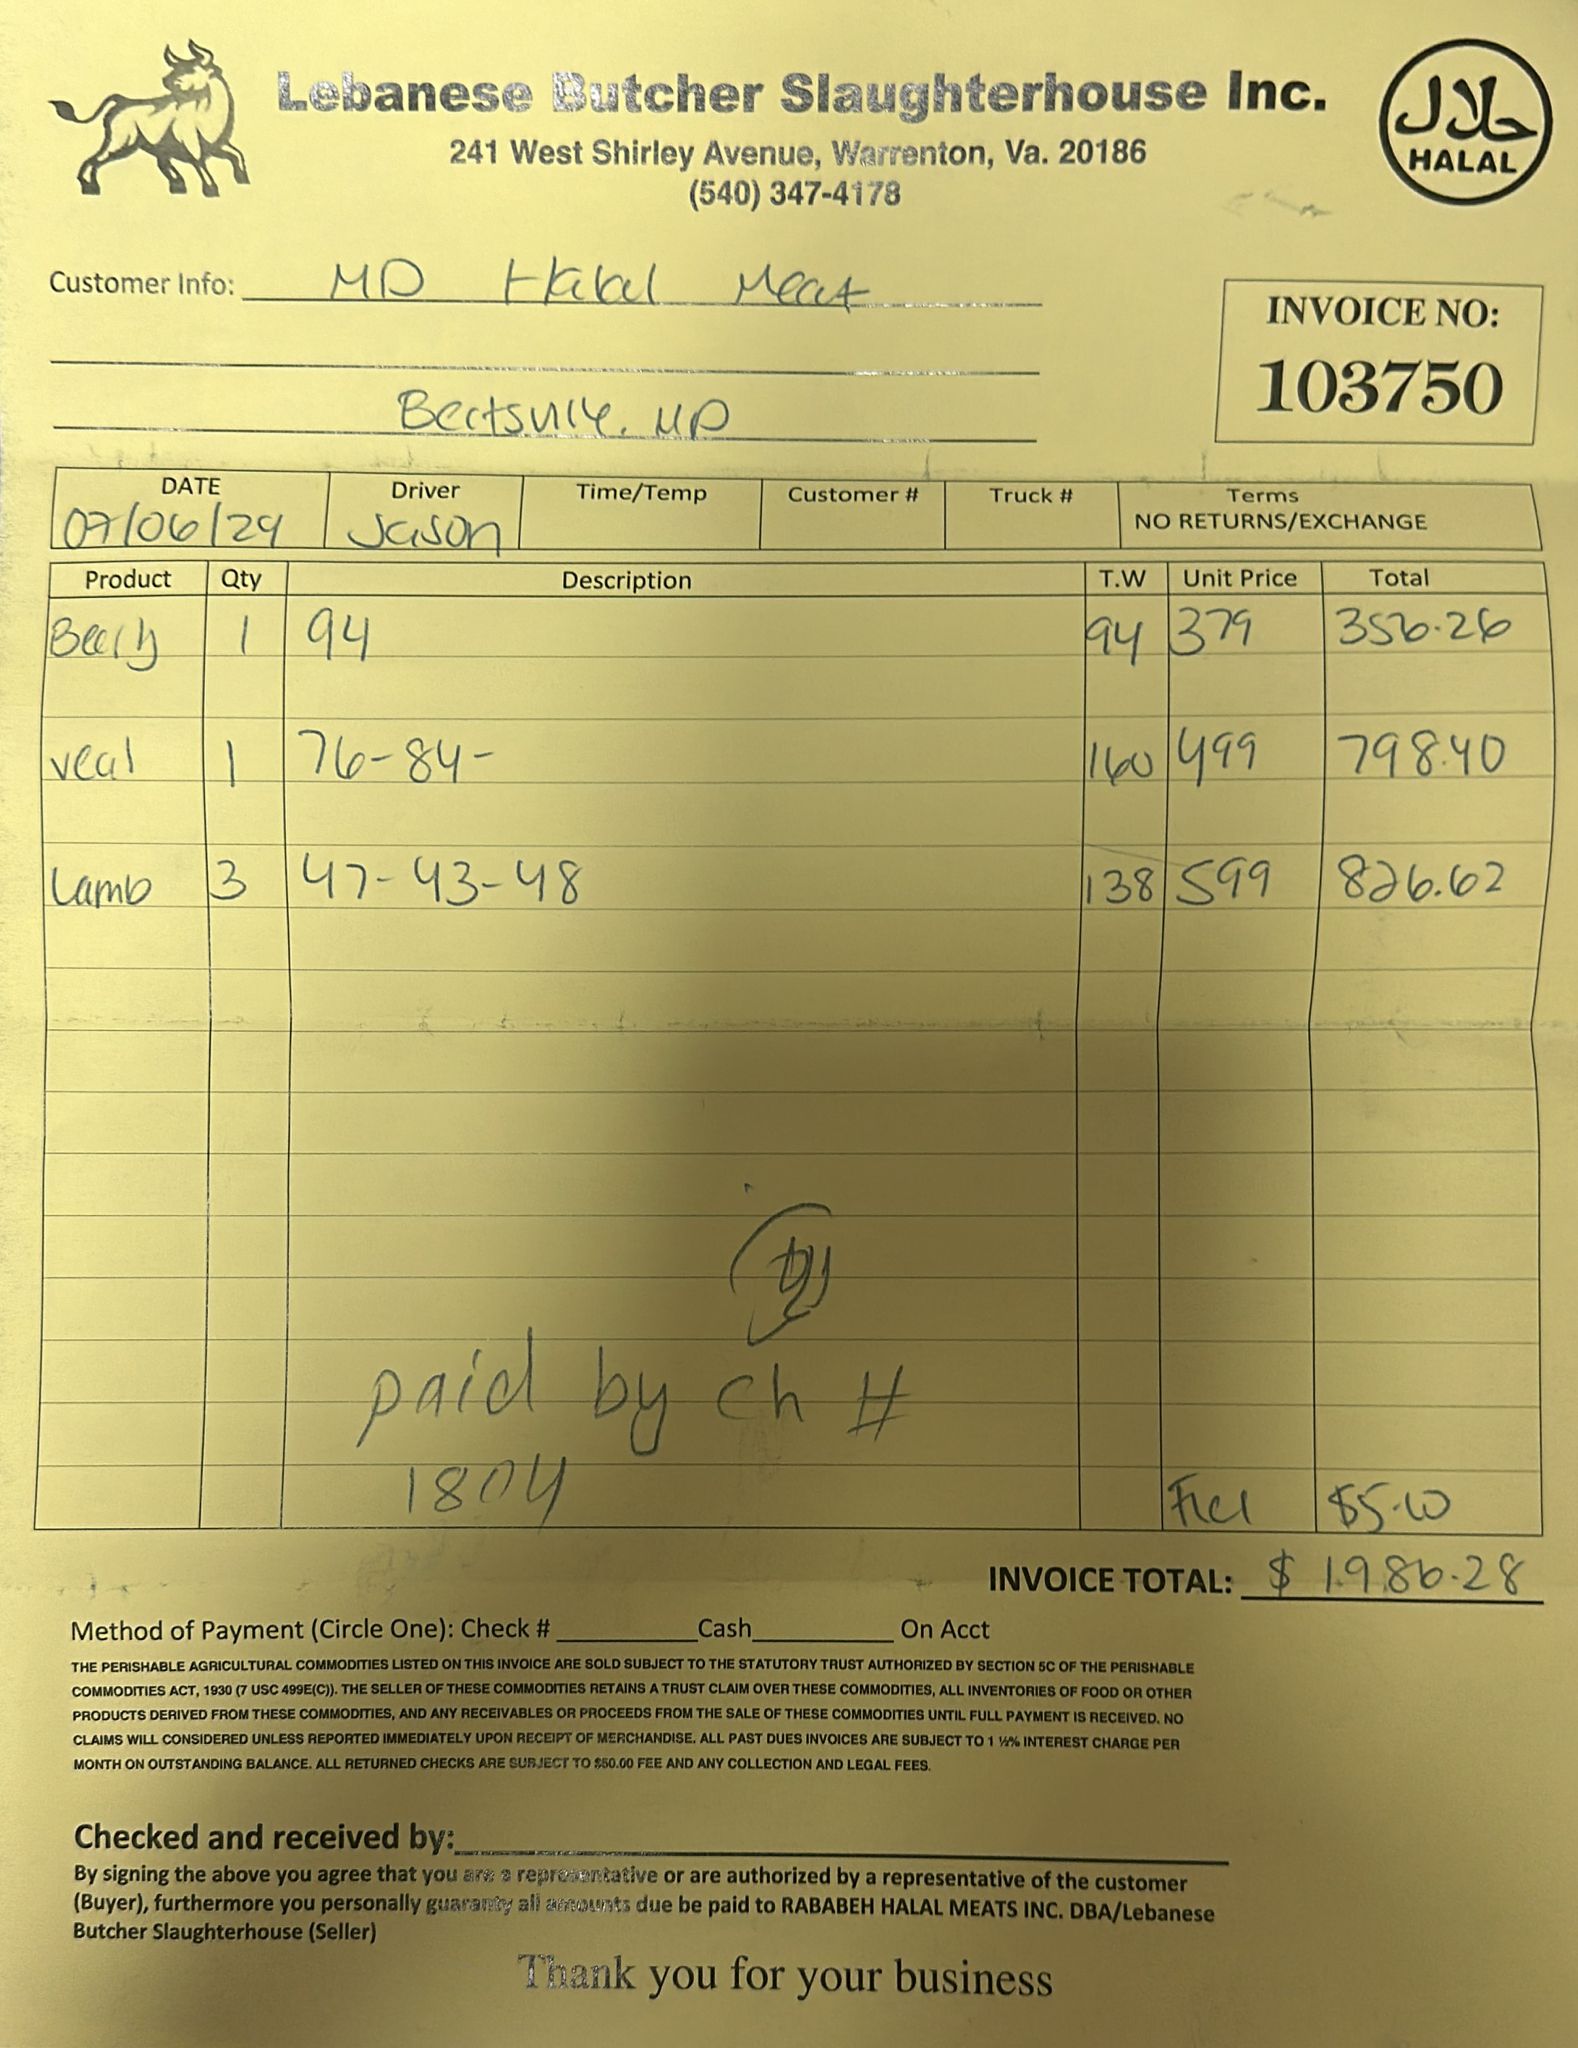 Lebanese Butcher Slaughterhouse Inc.
241 West Shirley Avenue, Warrenton, Va. 20186
(540) 347-4178
حلال
HALAL
Customer Info: MD Halal Meat
INVOICE NO:
103750
Beltsville, MD
DATE Driver Time/Temp Customer # Truck # Terms
07/06/24 Jason NO RETURNS/EXCHANGE
Product Qty Description T.W Unit Price Total
1 94 94 379 356.26
veal 1 76-84- 160 499 798.40
Lamb 3 47-43-48 138 599 826.62
paid by ch #
1804
Fuel $5.00
INVOICE TOTAL: $ 1986.28
Method of Payment (Circle One): Check # Cash On Acct
THE PERISHABLE AGRICULTURAL COMMODITIES LISTED ON THIS INVOICE ARE SOLD SUBJECT TO THE STATUTORY TRUST AUTHORIZED BY SECTION 5C OF THE PERISHABLE
COMMODITIES ACT, 1930 (7 USC 499E(C)). THE SELLER OF THESE COMMODITIES RETAINS A TRUST CLAIM OVER THESE COMMODITIES, ALL INVENTORIES OF FOOD OR OTHER
PRODUCTS DERIVED FROM THESE COMMODITIES, AND ANY RECEIVABLES OR PROCEEDS FROM THE SALE OF THESE COMMODITIES UNTIL FULL PAYMENT IS RECEIVED. NO
CLAIMS WILL CONSIDERED UNLESS REPORTED IMMEDIATELY UPON RECEIPT OF MERCHANDISE. ALL PAST DUES INVOICES ARE SUBJECT TO 1 ½% INTEREST CHARGE PER
MONTH ON OUTSTANDING BALANCE. ALL RETURNED CHECKS ARE SUBJECT TO $50.00 FEE AND ANY COLLECTION AND LEGAL FEES.
Checked and received by:
By signing the above you agree that you are a representative or are authorized by a representative of the customer
(Buyer), furthermore you personally guaranty all amounts due be paid to RABABEH HALAL MEATS INC. DBA/Lebanese
Butcher Slaughterhouse (Seller)
Thank you for your business